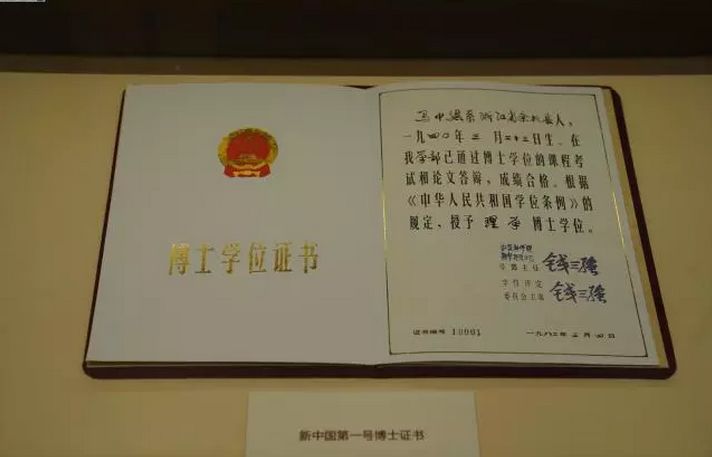 博士学位证书
马中骐系浙江省余杭县人，
一九四〇年二月二十三日生。在
我学部已通过博士学位的课程考
试和论文答辩，成绩合格。根据
《中华人民共和国学位条例》的
规定，授予 理学 博士学位。
学部主任 钱三强
学位评定
委员会主席 钱三强
证书编号 10001
新中国第一号博士证书